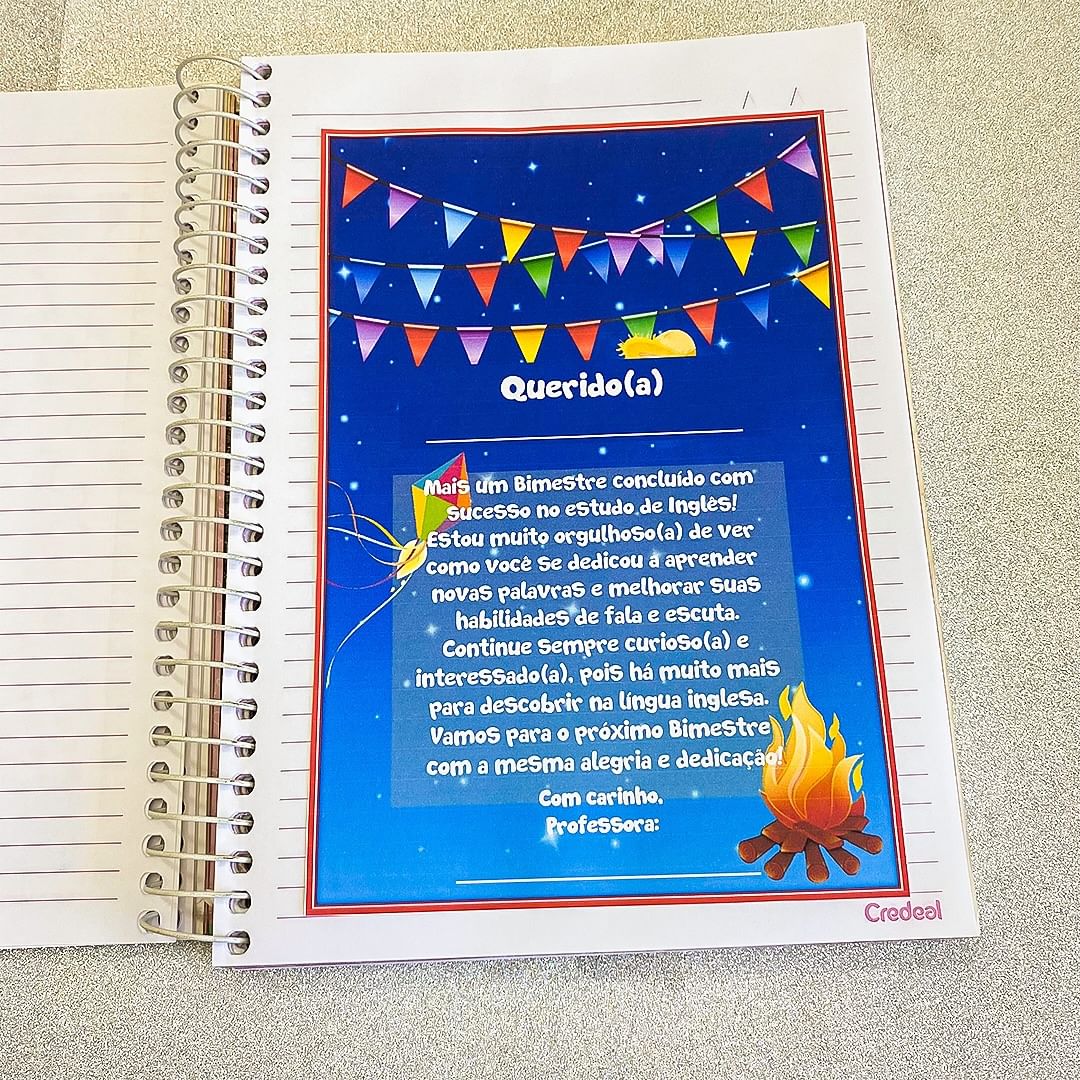 / /
Querido(a)
Mais um Bimestre concluído com
sucesso no estudo de Inglês!
Estou muito orgulhoso(a) de ver
como você se dedicou a aprender
novas palavras e melhorar suas
habilidades de fala e escuta.
Continue sempre curioso(a) e
interessado(a), pois há muito mais
para descobrir na língua inglesa.
Vamos para o próximo Bimestre
com a mesma alegria e dedicação!
Com carinho,
Professora:
Credeal